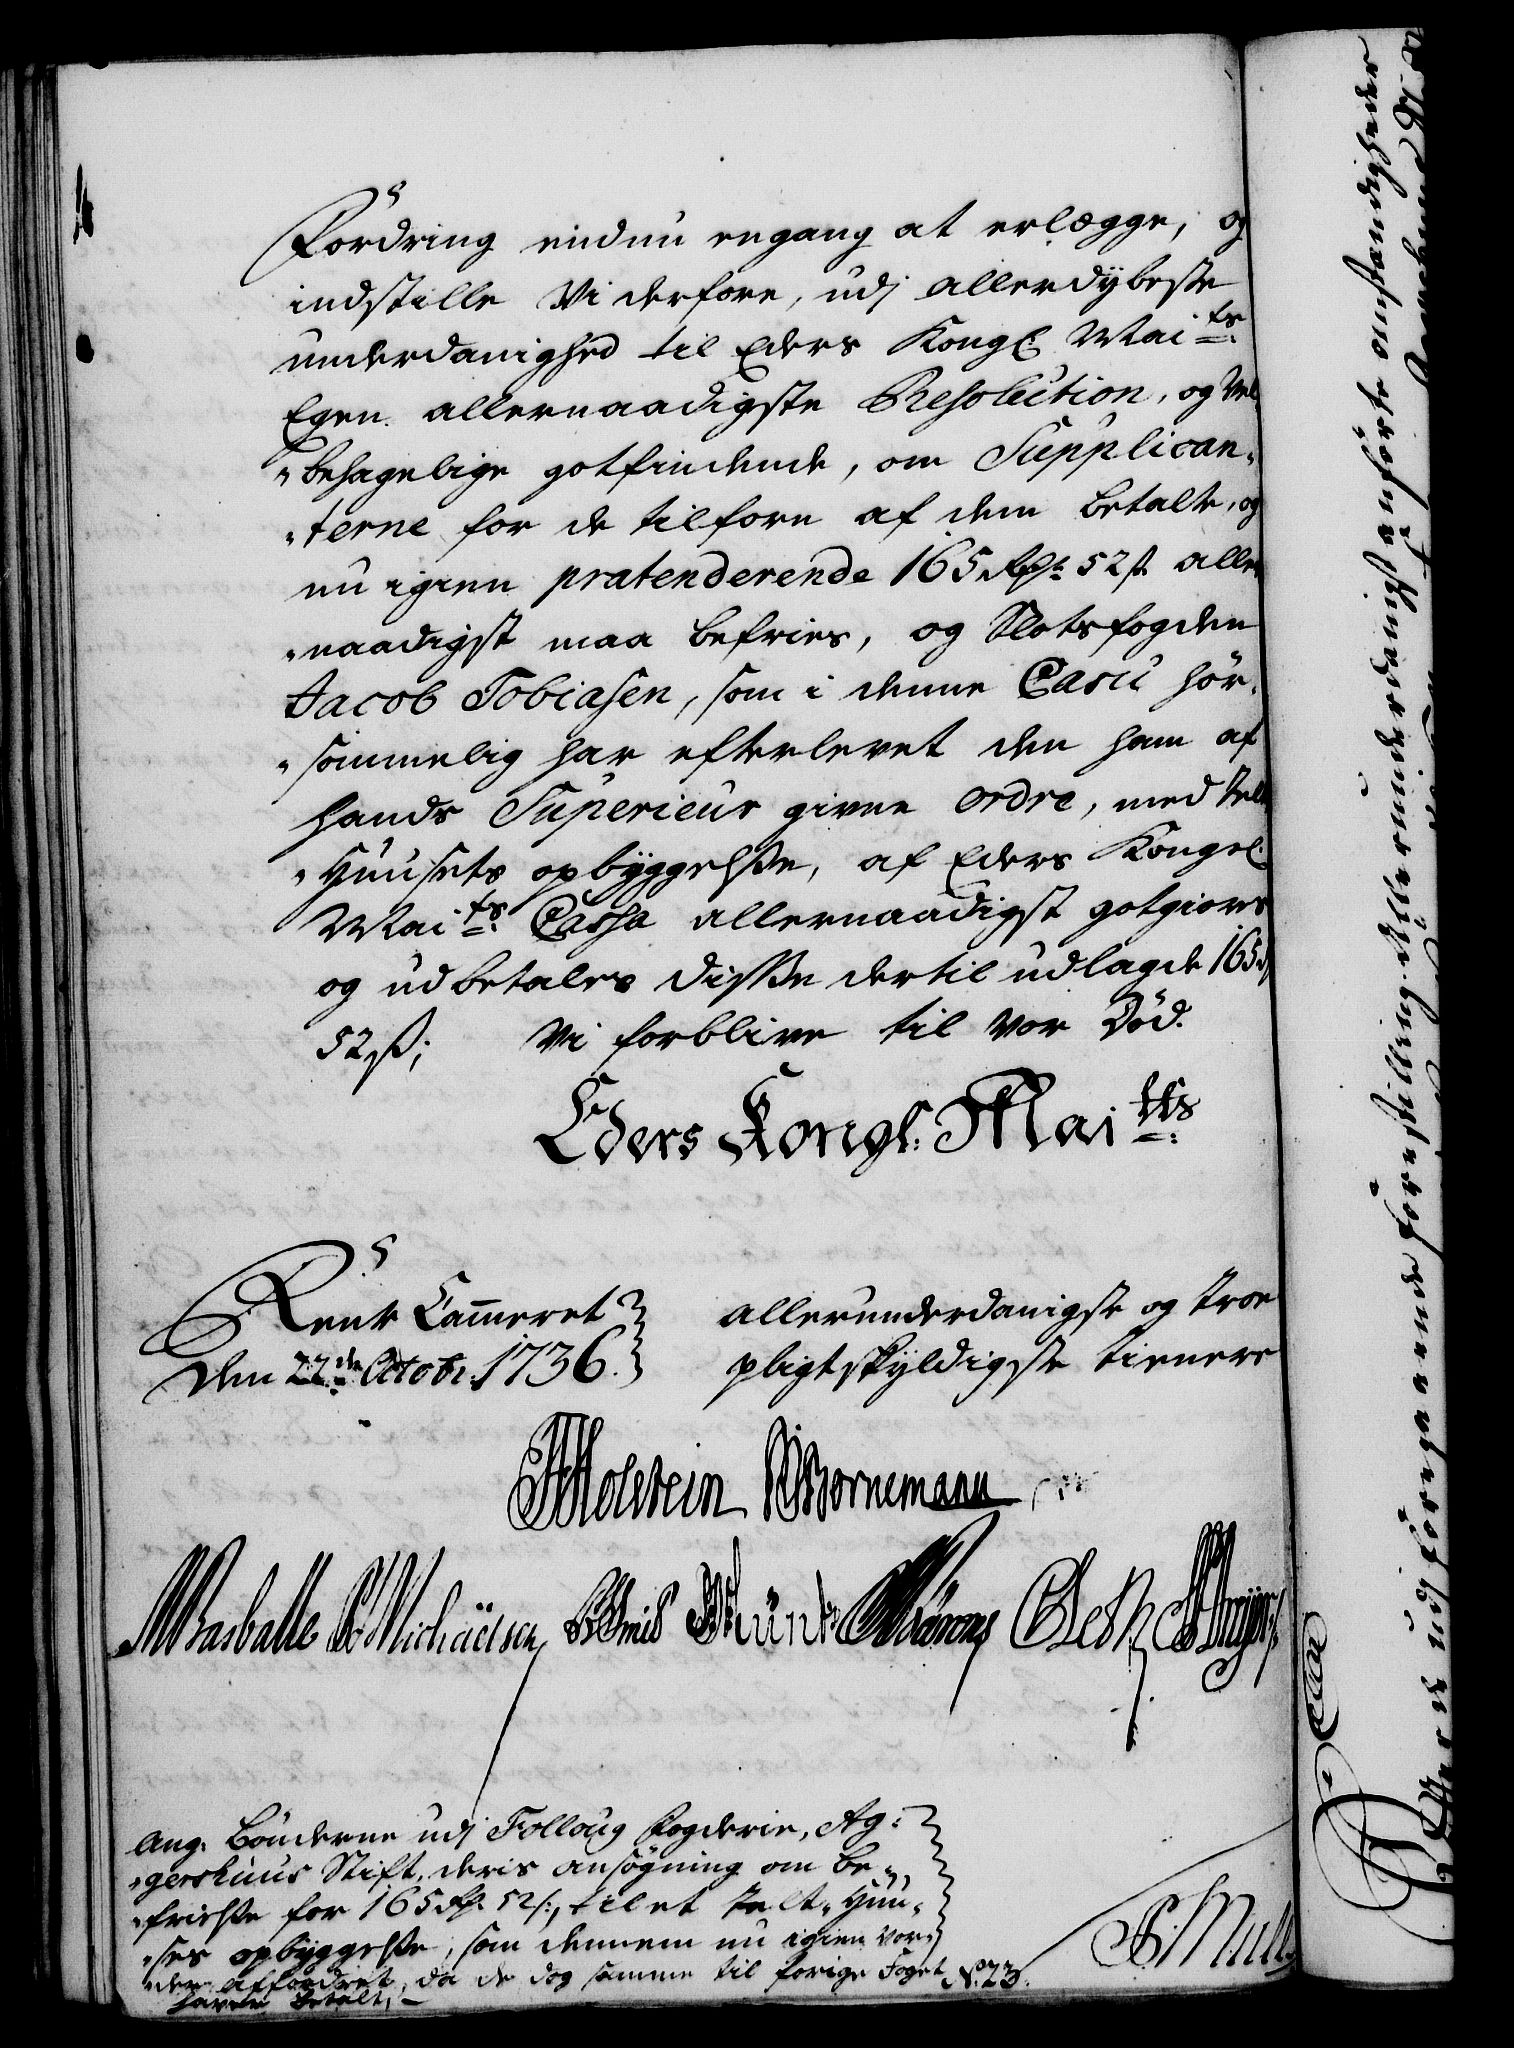 Fordring endnu engang at erlægge, og
indstille Vi derfore, udj allerdybeste
underdanighed til Eders Kongl: Mai:ts
Egen allernaadigste Resolution, og Vel-
„behagelige gotfindende, om Supplican-
„terne for de tilforn af dem betalte, og
nu igien prætenderende 165 Rdr: 52 s. aller
„naadigst maa befries, og Slotsfogden
Jacob Tobiasen, som i denne Casu hør-
„sommelig har efterlevet den ham af
hands Superieur givne ordre, med Telt
„Huusets opbyggelsse, af Eders Kongel:
Mai:ts Cassa allernaadigst gotgiøres
og udbetales disse dertil udlagde 165 rd
52 s; Vi forblive til vor Død.
Eders Kongl. Mai:tts
Rente Cammeret
den 22de Octobr. 1736.
allerunderdanigste og troe
pligtskyldigste tienere
JHolstein Bornemann
Basballe Michaelsen Smid Munk
ang: Bønderne udj Folloug Fogderie, Ag-
„gershuus Stift, deris ansøgning om be-
„frielsse for 165 Rd. 52 s:, til et telt-Huu-
„ses opbyggelsse, som dennem nu igien vor-
„der affordret, da de dog samme til forige Foged
haver betalt,
No. 23.
Mull
Ved udj foregaaende forestilling Allerunderdanigst anførte omstændigheder